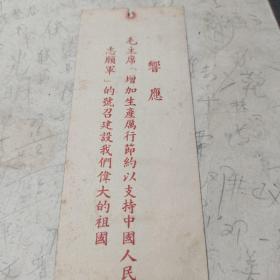 響應
毛主席「增加生產厲行節約以支持中國人民
志願軍」的號召建設我們偉大的祖國